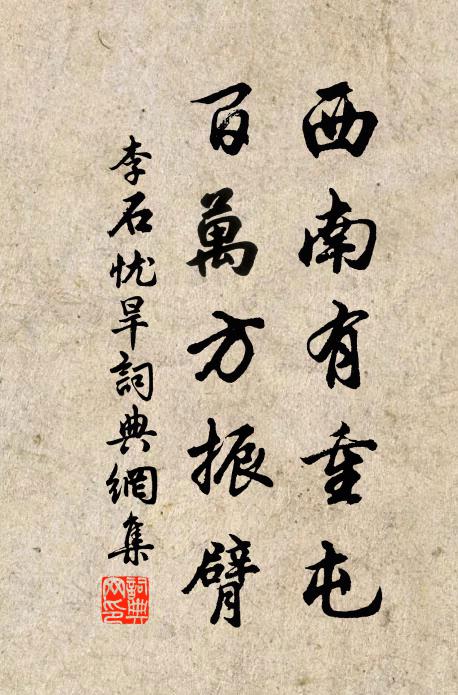 西南有重屯
百萬方振臂
李石忧旱詞典網集
詞典网印